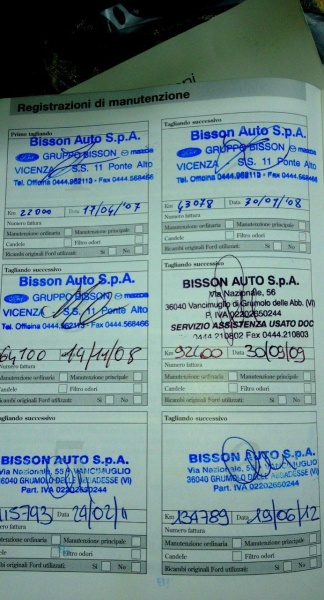 Registrazioni di manutenzione
Primo tagliando
Bisson Auto S.p.A.
Ford GRUPPO BISSON mazda
VICENZA S.S. 11 Ponte Alto
Tel. Officina 0444.962113 - Fax 0444.568466
Km 22000 Data 17/04/'07
Numero fattura
Manutenzione ordinaria Manutenzione principale
Candele Filtro odori
Ricambi originali Ford utilizzati: Sì No
Tagliando successivo
Bisson Auto S.p.A.
Ford GRUPPO BISSON mazda
VICENZA S.S. 11 Ponte Alto
Tel. Officina 0444.962113 - Fax 0444.568466
Km 43078 Data 30/01/'08
Numero fattura
Manutenzione ordinaria Manutenzione principale
Candele Filtro odori
Ricambi originali Ford utilizzati: Sì No
Tagliando successivo
Bisson Auto S.p.A.
Ford GRUPPO BISSON mazda
VICENZA S.S. 11 Ponte Alto
Tel. Officina 0444.962113 - Fax 0444.568466
64100 14/11/08
Numero fattura
Manutenzione ordinaria Manutenzione principale
Candele Filtro odori
Ricambi originali Ford utilizzati: Sì No
Tagliando successivo
BISSON AUTO S.p.A.
Via Nazionale, 56
36040 Vancimuglio di Grumolo delle Abb. (VI)
P. IVA 02202650244
SERVIZIO ASSISTENZA USATO DOC
0444 210802 Fax 0444.210803
Km 92600 Data 30/09/09
Numero fattura
Manutenzione ordinaria Manutenzione principale
Candele Filtro odori
Ricambi originali Ford utilizzati: Sì No
Tagliando successivo
BISSON AUTO S.p.A.
Via Nazionale, 55 VANCIMUGLIO
36040 GRUMOLO DELLE ABBADESSE (VI)
Part. IVA 02202650244
115793 Data 24/02/11
Numero fattura
Manutenzione ordinaria Manutenzione principale
Candele Filtro odori
Ricambi originali Ford utilizzati: Sì No
Tagliando successivo
BISSON AUTO S.p.A.
Via Nazionale, VANCIMUGLIO
36040 GRUMOLO DELLE ABBADESSE (VI)
Part. IVA 02202650244
Km 134789 Data 19/06/12
Numero fattura
Manutenzione ordinaria Manutenzione principale
Candele Filtro odori
Ricambi originali Ford utilizzati: Sì No